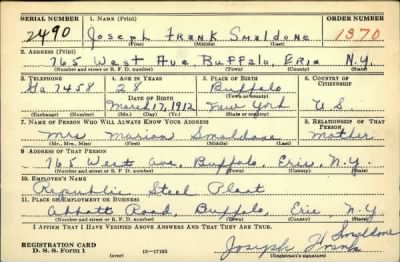 SERIAL NUMBER 1. NAME (Print) ORDER NUMBER
2490 Joseph Frank Smaldone 1370
(First) (Middle) (Last)
2. ADDRESS (Print)
765 West Ave, Buffalo, Erie N.Y.
(Number and street or R. F. D. number) (Town) (County) (State)
3. TELEPHONE 4. AGE IN YEARS 5. PLACE OF BIRTH 6. COUNTRY OF CITIZENSHIP
Ga 7458 28 Buffalo
(Town or county)
DATE OF BIRTH
March 17, 1912 New York U S
(Exchange) (Number) (Mo.) (Day) (Yr.) (State or country)
7. NAME OF PERSON WHO WILL ALWAYS KNOW YOUR ADDRESS 8. RELATIONSHIP OF THAT PERSON
Mrs Marion Smaldone Mother
(Mr., Mrs., Miss) (First) (Middle) (Last)
9. ADDRESS OF THAT PERSON
765 West Ave, Buffalo, Erie, N.Y.
(Number and street or R. F. D. number) (Town) (County) (State)
10. EMPLOYER'S NAME
Republic Steel Plant
11. PLACE OF EMPLOYMENT OR BUSINESS
Abbott Road, Buffalo, Erie, N.Y
(Number and street or R. F. D. number) (Town) (County) (State)
I AFFIRM THAT I HAVE VERIFIED ABOVE ANSWERS AND THAT THEY ARE TRUE.
Smaldone
REGISTRATION CARD Joseph Frank
D. S. S. Form 1 (over) 16—17105 (Registrant's signature)